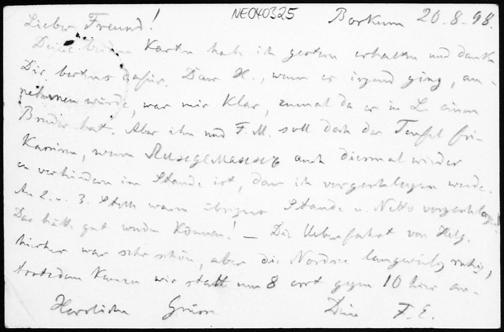 NE040325
Borkum 20.8.98.
Lieber Freund!
Deine beiden Karten hab ich gestern erhalten und danke
Dir bestens dafür. Dass H., wenn er irgend ging, an-
nehmen würde, war mir klar, zumal da er in L. einen
Bruder hat. Aber ihn und F. M. soll doch der Teufel fri-
wenn auch diesmal wieder
es verhindern im Stande ist, dass ich vorgeschlagen werde.
An 2. u. 3. Stelle waren übrigens Stande u. Netto vorgeschlag
Das hätte gut werden können! — Die Ueberfahrt von Helg.
hierher war sehr schön, aber die Nordsee langweilig ruhig,
trotzdem kamen wir statt um 8 erst gegen 10 hier an.
Herzliche Grüsse Dein F. E.